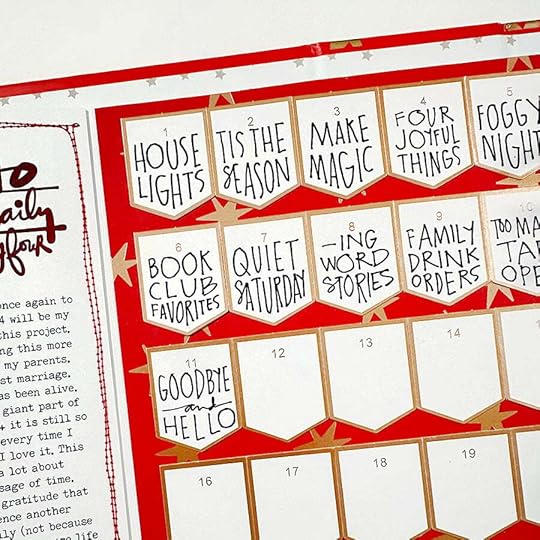 TO
aily
yfour
once again to
4 will be my
this project.
ing this more
my parents.
st marriage.
as been alive.
giant part of
+ it is still so
every time I
I love it. This
a lot about
sage of time.
gratitude that
ence another
ily (not because
life
1
HOUSE
LIGHTS
2
TIS THE
SEASON
3
MAKE
MAGIC
4
FOUR
JOYFUL
THINGS
5
FOGGY
NIGHT
6
BOOK
CLUB
FAVORITES
7
QUIET
SATURDAY
8
-ING
WORD
STORIES
9
FAMILY
DRINK
ORDERS
10
TOO MA
TAB
OPE
11
GOODBYE
and
HELLO
12
13
14
16
17
18
19